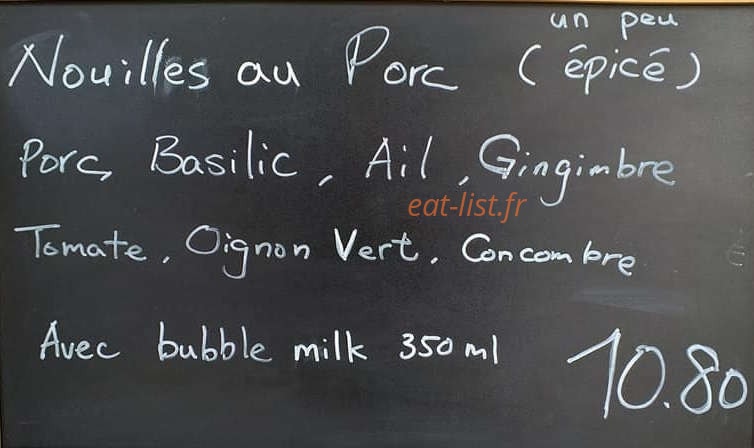 un peu
Nouilles au Porc (épicé)
Porc, Basilic, Ail, Gingimbre
eat-list.fr
Tomate, Oignon Vert, Concombre
Avec bubble milk 350 ml
10.80